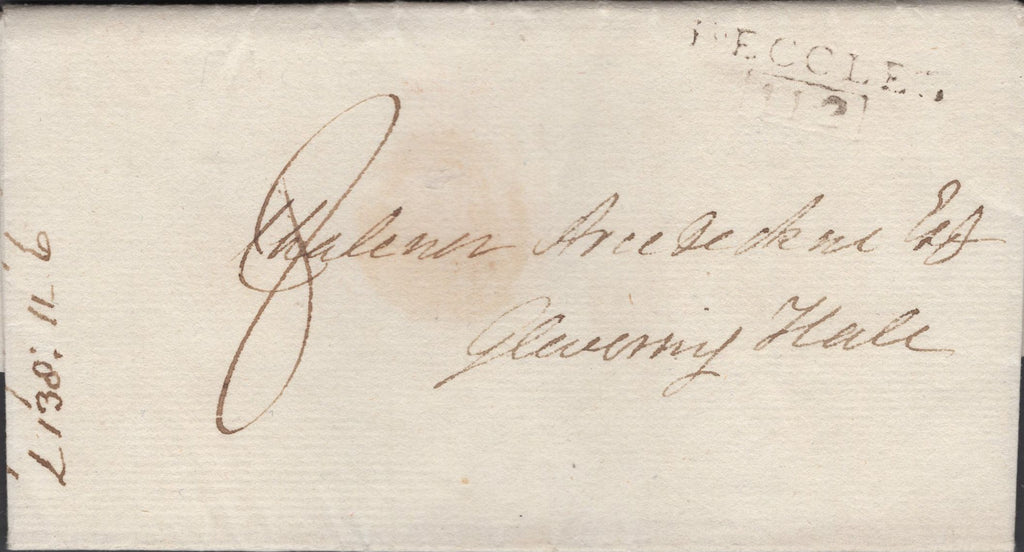 BECCLES
112
8
Chaloner Arcedeckne Esqr
Glevering Hall
£138: 11 6